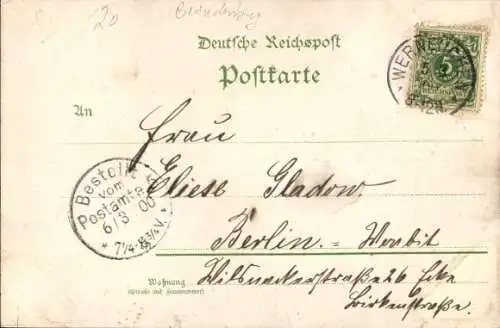 20
Deutsche Reichspost
Postkarte
An
Frau
Eliese Gladow
Berlin. = Moabit
Wilsnackerstraße 26 Ecke
Birkenstraße.
Wohnung
(Straße und Hausnummer)
WERNEUCHEN
5
8-12N.
Bestellt
vom
Postamte 5
6/3 00
* 7¼-8¾V. *